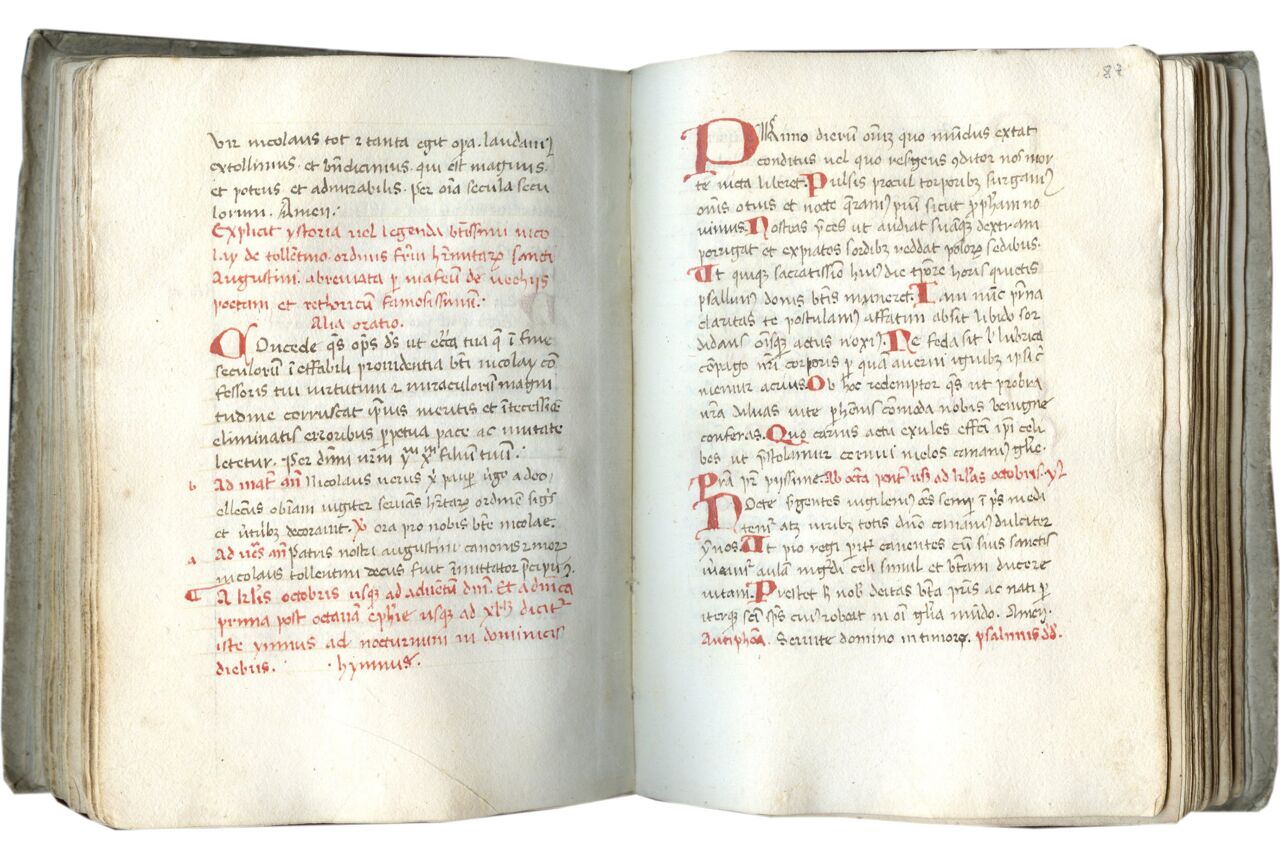 Vir nicolaus tot ⁊ tanta egit opa. laudamꝰ
extollimus. et bn̄dicimus. qui est magnus.
et potens et admirabilis. per oīa secula secu
lorum. Amen.
Explicit ystoria uel legenda btissimi nico
lay de tollētino. ordinis fr̄m h̄mitarꝝ sancti
Augustini. abreuiata ꝑ mafeum de uechijs
poetam et rethoricum famosissimum.
Alia oratio.
COncede qs̄ ops̄ ds̄ ut ecc̄a tua q̄ ī fine
seculorum ī effabili prouidentia bt̄i nicolay cō
fessoris tui uirtutum ⁊ miraculorum magni
tudine corruscat ipius meritis et ītercessiōe
eliminatis erroribus ꝑpetua pace ac unitate
letetur. Per dnm̄ nrm̄ yhm xpm filium tuum.
b Ad mat̄. an̄ Nicolaus uerus xp̄i pauꝑ uirgo a deo
ellectus obtam iugiter seruans h̄mitarꝝ ordinē signis
et uirtutibꝫ decorauit. ꝟ ora pro nobis bt̄e nicolae.
a Ad ues̄. an̄ Patris nostri augustini canonis ⁊ mor
nicolaus tollentini decus fuit īmitator p̄cipuꝰ.
A kl̄is octobris usqꝫ ad aduētum dnī. Et a dnīca
prima post octauam ephīe usqꝫ ad xl dicitur
iste ymnus ad nocturnum in dominicis
diebus. hymnus.
87
PRimo dierū oīm quo mūdus extat
conditus uel quo resurgens ꝯditor nos mor
te uicta liberet. Pulsis procul torporibꝫ surgamꝰ
om̄s otius et nocte q̄ramꝰ pium sicut ꝓphetam no
uimus. Nostras p̄ces ut audiat suāqꝫ dextram
porrigat et expiatos sordibꝫ reddat polorꝝ sedibus.
Ut quiqꝫ sacratissio huiꝰ diei tpore horis quietis
psallimꝰ donis btis muneret. Iam nūc pr̄na
claritas te postulamꝰ affatim absit libido sor
didans om̄isqꝫ actus noxiꝰ. Ne feda sit l' lubrica
cōpago nr̄i corporis ꝑ quā auerni ignibꝫ ipsi c̄
memur acrius. Ob hoc redemptor qs̄ ut probra
nr̄a diluas uite ꝑhēnis cōmoda nobis benigne
conferas. Quo carnis actu exules effcī ipi celi
bes ut p̄stolamur cernui melos canamꝰ glīe.
Pr̄a pr̄ piissime. Ab octa pent̄ usqꝫ ad kl̄as octobris. y
NOcte surgentes uigilemꝰ oēs semp̄ ī ps̄ medi
temꝰ atqꝫ uiribꝫ totis dn̄o canamꝰ dulciter
ymnos. Ut pio regi pit̄ canentes cū suis sanctis
mereamur aulā ingrēdi celi simul et btam ducere
uitam. Prestet h̄ nob deitas bta pris ac nati ꝑ
iterqꝫ sc̄i sp̄s cuiꝰ reboat in oī glīa mūdo. Amen.
Antiphōa. Seruite domino in timore. psalmus dd̄.